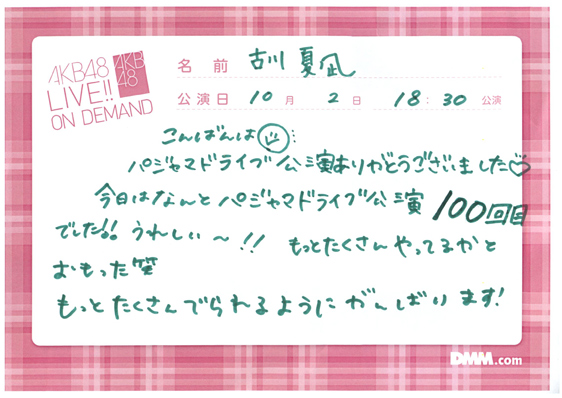 AKB48
LIVE!!
ON DEMAND
AKB
48
名前 古川 夏凪
公演日 10月 2日 18:30 公演
こんばんは
パジャマドライブ公演ありがとうございました♡
今日はなんとパジャマドライブ公演 100回目
でした!! うれしい〜!! もっとたくさんやってるかと
おもった笑
もっとたくさんでられるようにがんばります!
DMM.com